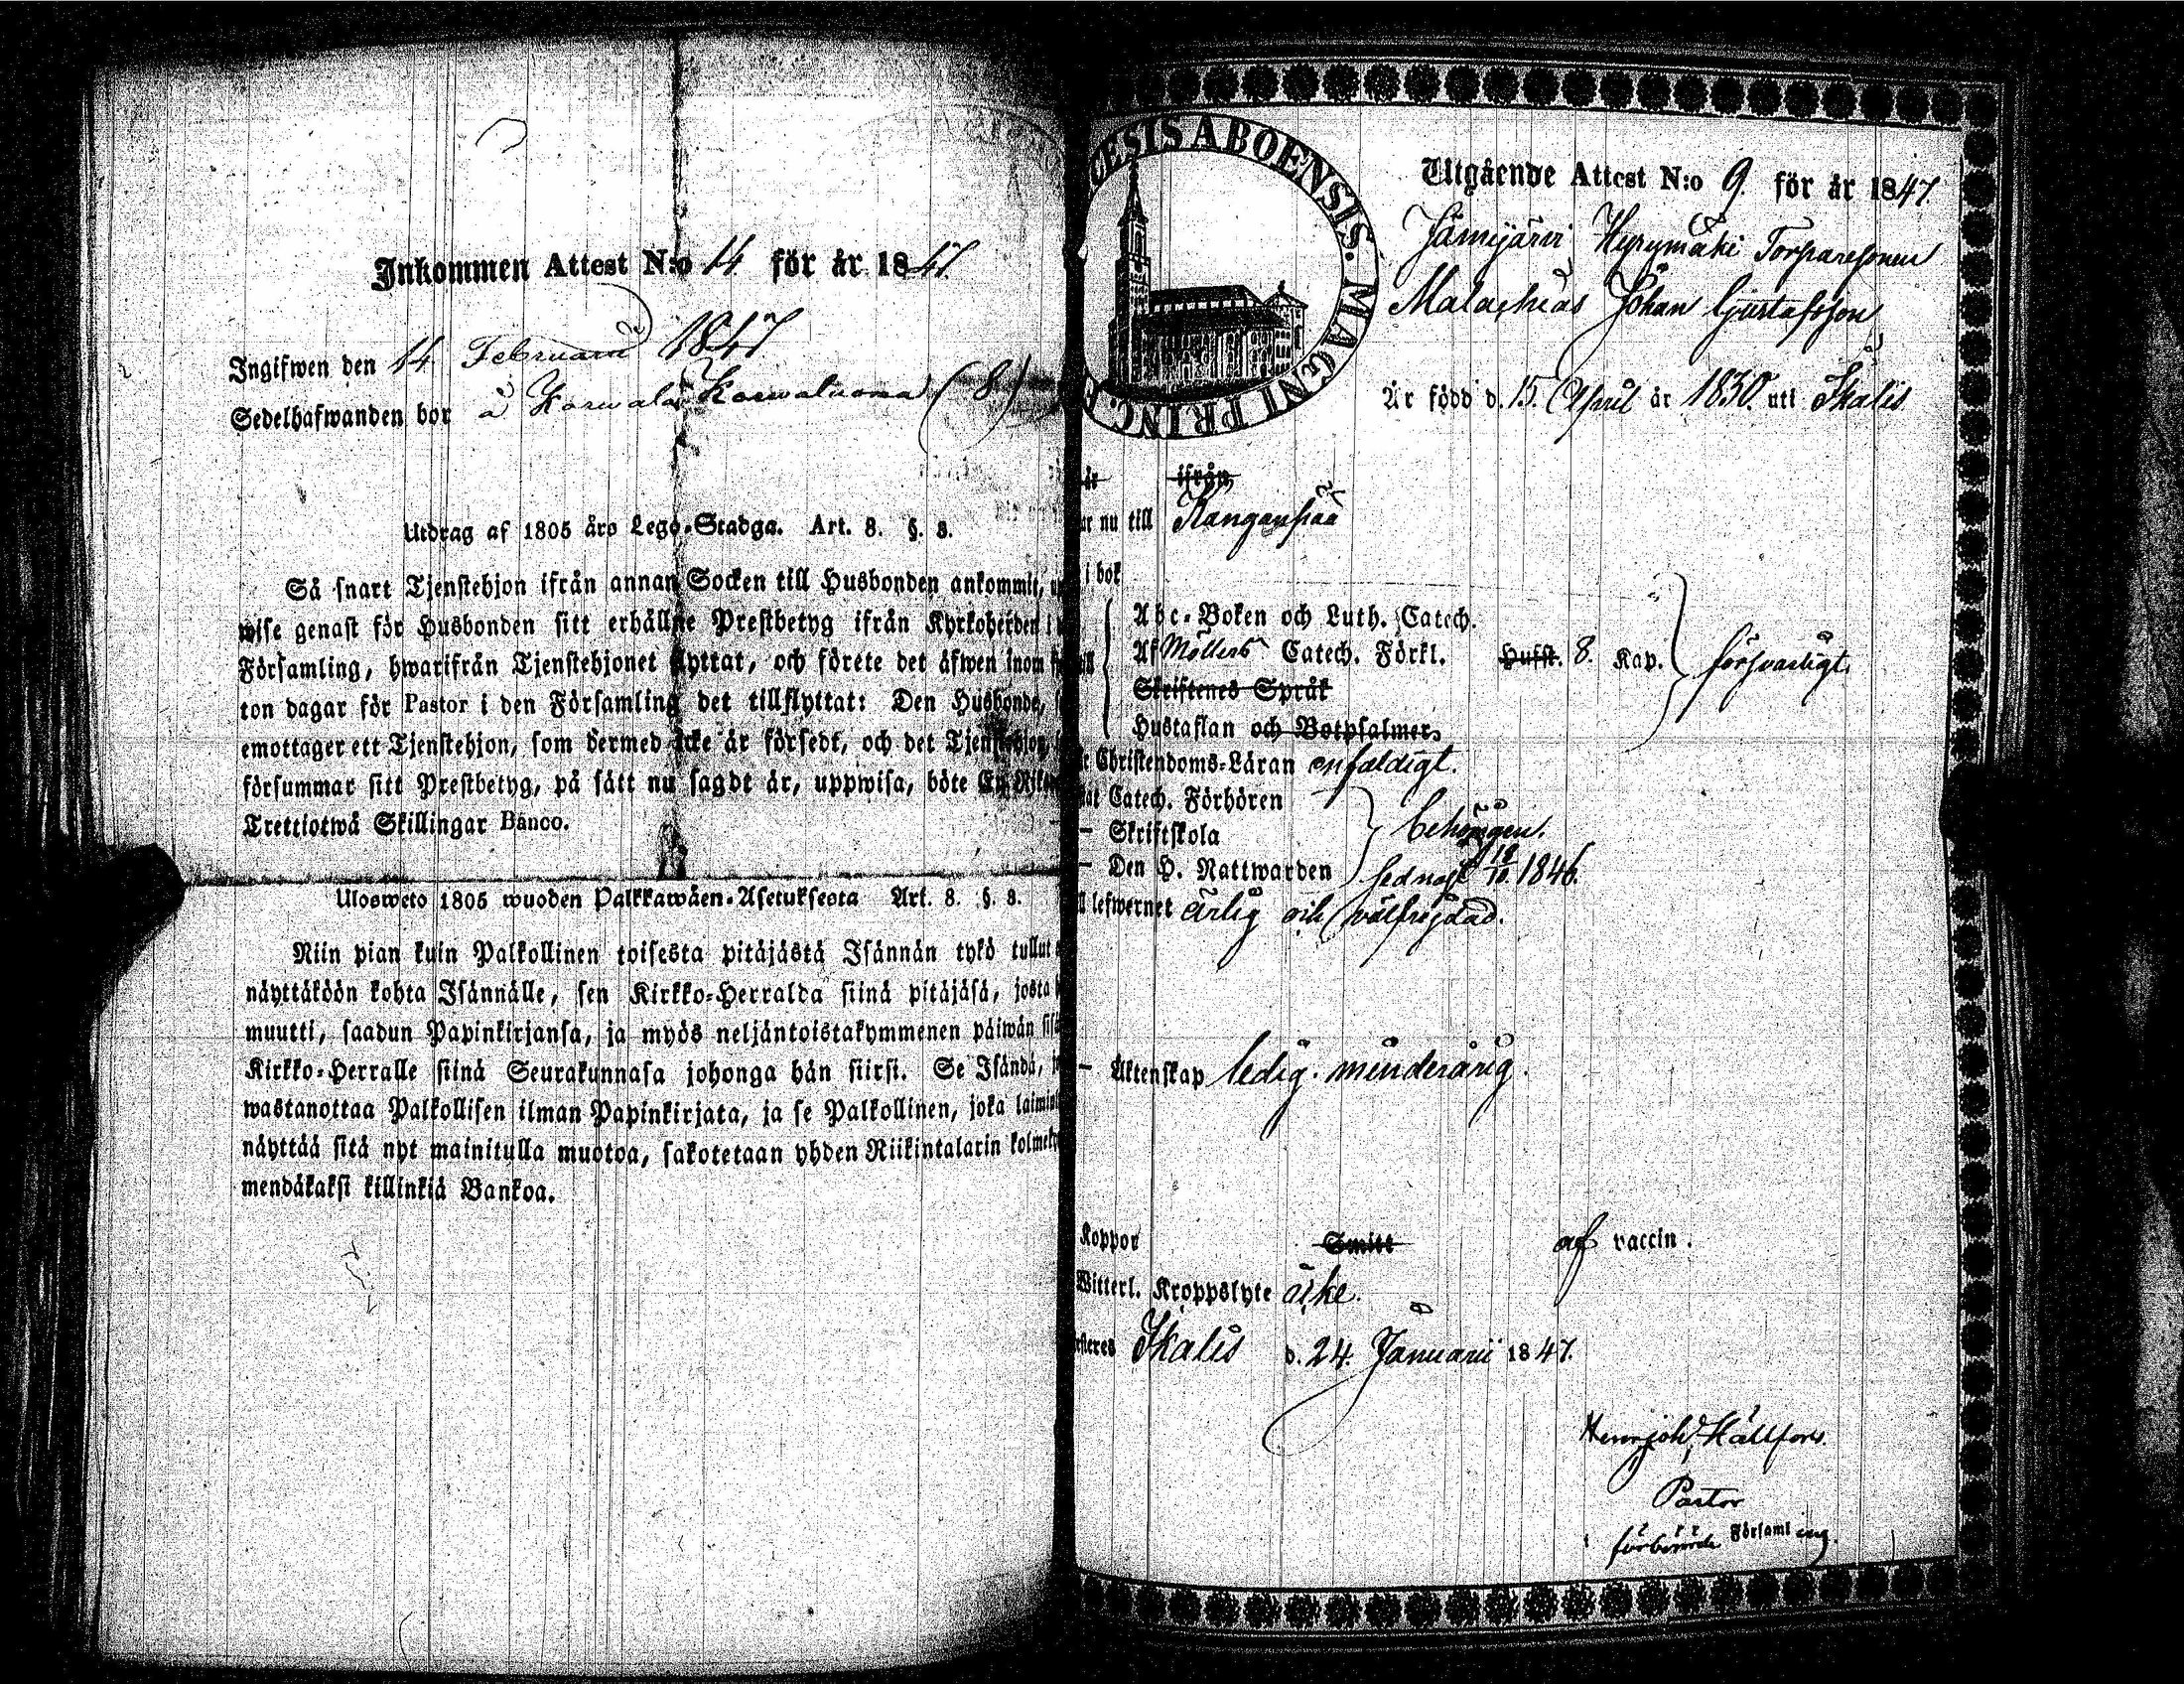 Inkommen Attest N:o 14 för år 1847
Ingifwen den 14 Februarii 1847
Sedelhafwanden bor å Karwala Karwaluoma (8)
Utdrag af 1805 åro Lego-Stadga. Art. 8. §. 8.
Så snart Tjenstehjon ifrån annan Socken till Husbonden ankommit,
wise genast för Husbonden sitt erhållne Prestbetyg ifrån Kyrkoherden i
Församling, hwarifrån Tjenstehjonet flyttat, och förete det äfwen inom
ton dagar för Pastor i den Församling det tillflyttat: Den Husbonde,
emottager ett Tjenstehjon, som dermed icke är försedt, och det Tjenstehjon
försummar sitt Prestbetyg, på sätt nu sagdt är, uppwisa, böte En Riks
Trettiotwå Skillingar Banco.
Ulosweto 1805 wuoden Palkkawäen-Asetuksesta Art. 8. §. 8.
Niin pian kuin Palkollinen toisesta pitäjästä Isännän tykö tullut
näyttäköön kohta Isännälle, sen Kirkko-Herralda siinä pitäjäsä, josta
muutti, saadun Papinkirjansa, ja myös neljäntoistakymmenen päiwän sisä
Kirkko-Herralle siinä Seurakunnasa johonga hän siirsi. Se Isändä,
wastanottaa Palkollisen ilman Papinkirjata, ja se Palkollinen, joka laimin
näyttää sitä nyt mainitulla muotoa, sakotetaan yhden Riikintalarin kolmeky
mendäkaksi killinkiä Bankoa.
CESIS ABOENSIS. MAGNI PRINC. F
Utgående Attest N:o 9. för år 1847
Jämijärvi Hyrymäki Torparesonen
Malachias Johan Gustafsson
Är född d. 15. April år 1830. uti Ikalis
är ifrån
ar nu till Kanganpää
i bok
Abc-Boken och Luth. Catech.
Af Möllers Catech. Förkl. Husst. 8. Kap. försvarligt.
Skriftenes Språk
Hustaflan och Botpsalmer.
Christendoms-Läran enfaldigt.
Catech. Förhören
– Skriftskola behörigen.
– Den H. Nattwarden sednast 18/10. 1846.
lefwernet ärlig och välfrejdad.
– Äktenskap ledig. minderårig.
Koppor Smitt af vaccin.
Witterl. Kroppslyte icke.
esteres Ikalis d. 24. Januarii 1847.
Henr Joh Hällfors.
Pastor
förberörde Församling.